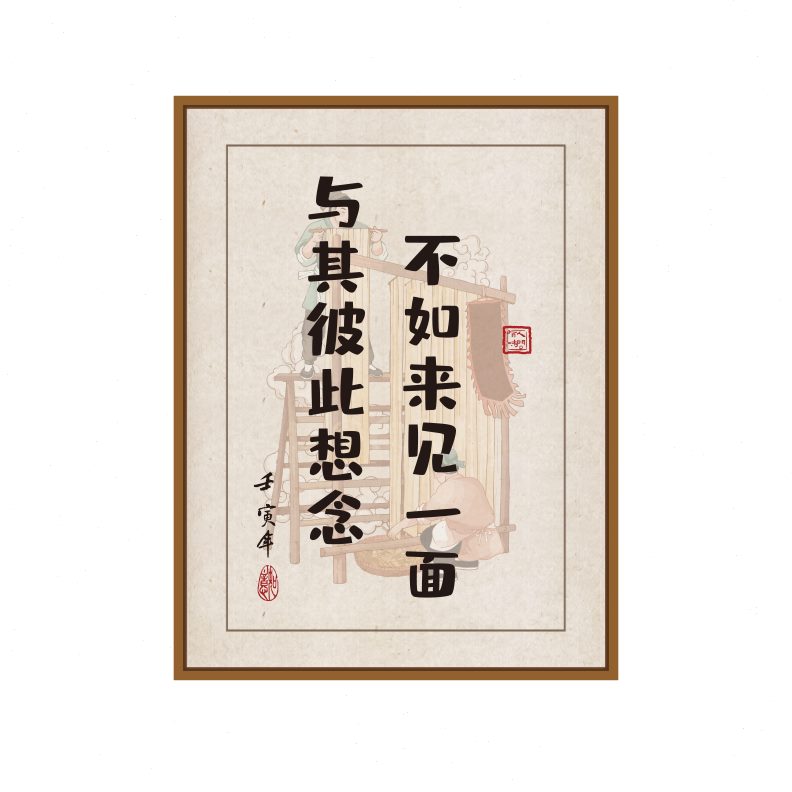 与其彼此想念
不如来见一面
壬寅年